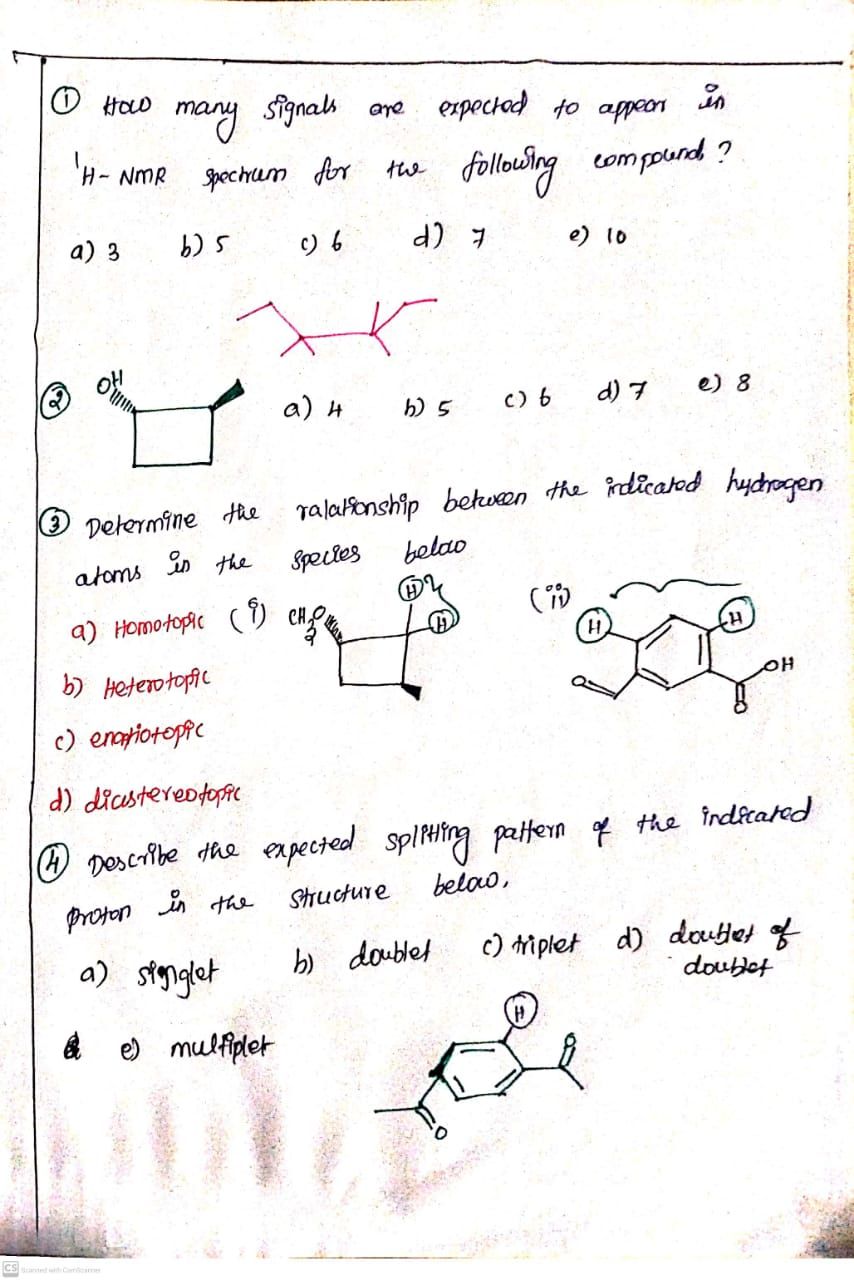 ① How many signals are expected to appear in
¹H- NMR spectrum for the following compound?
a) 3 b) 5 c) 6 d) 7 e) 10
② OH a) 4 b) 5 c) 6 d) 7 e) 8
③ Determine the ralationship between the indicated hydrogen
atoms in the species below
a) Homotopic (i) CH₃O H H (ii) H H
b) Heterotopic O OH O
c) enantiotopic
d) diastereotopic
④ Describe the expected splitting pattern of the indicated
proton in the structure below,
a) singlet b) doublet c) triplet d) doublet of
doublet
e) multiplet H O
O
CS Scanned with CamScanner